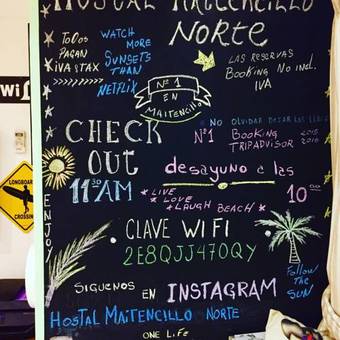 HOSTAL MAITENCILLO
NORTE
TODOS
PAGAN
IVA STAX
>>>>>>>>
WATCH
MORE
SUNSETS
THAN
NETFLIX
LAS RESERVAS
BOOKING NO INCL.
IVA
Nº1
EN
MAITENCILLO
NO OLVIDAR DEJAR LAS
CHECK
OUT
11:30 AM
Nº1 BOOKING 2015
TRIPADVISOR 2016
desayuno a las
10:00
* LIVE
* LOVE
* LAUGH BEACH *
ENJOY
• CLAVE WIFI •
2E8QJJ470QY
SIGUENOS EN INSTAGRAM
HOSTAL MAITENCILLO NORTE
FOLLOW
THE
SUN
ONE LIFE
Wi
LONGBOARD
CROSSING